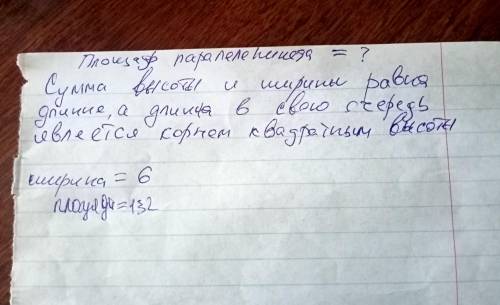 Площадь паралелепипеда = ?
Сумма высоты и ширины равна
длинне, а длинна в свою очередь
явлеется корнем квадратным высоты
ширина = 6
площадь=132